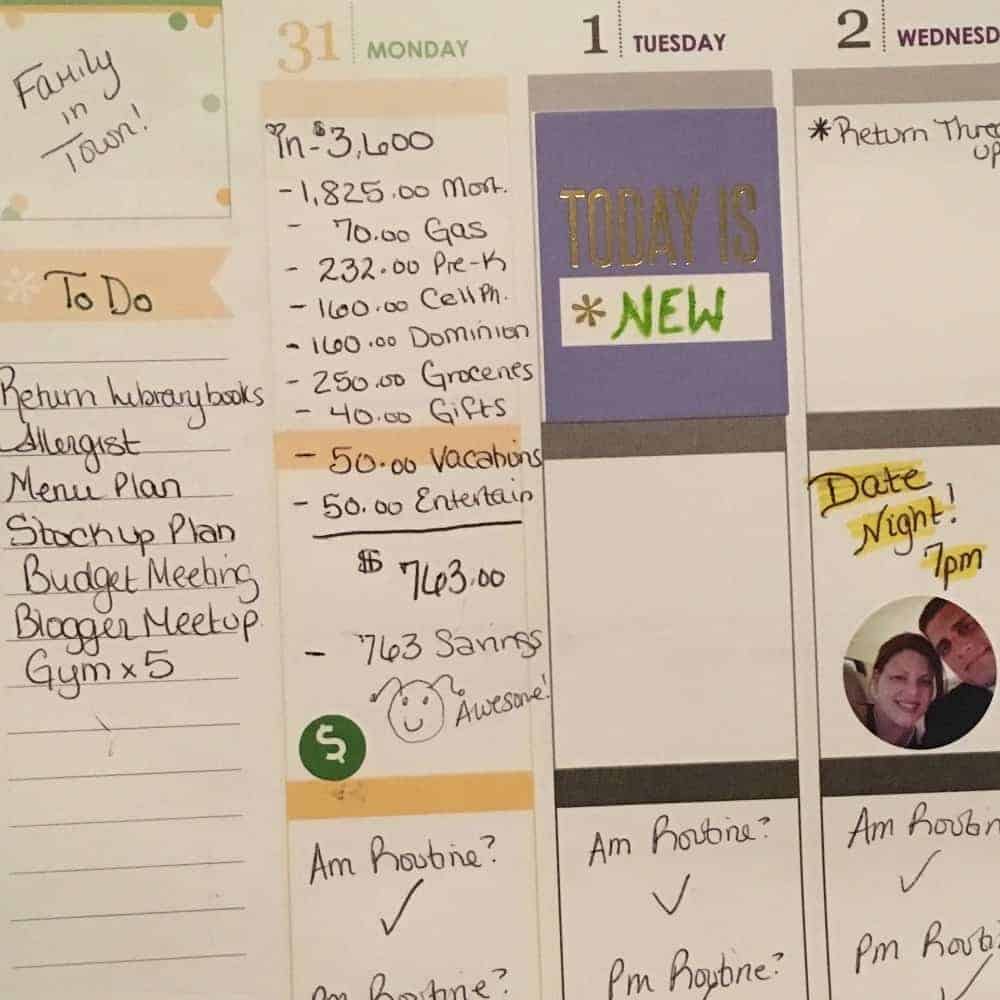 Family
in
Town!
To Do
Return Library books
Allergist
Menu Plan
Stock up Plan
Budget Meeting
Blogger Meetup
Gym x 5
31 MONDAY
In - $3,600
- 1,825.00 Mort.
- 70.00 Gas
- 232.00 Pre-K
- 160.00 Cell Ph.
- 160.00 Dominion
- 250.00 Groceries
- 40.00 Gifts
- 50.00 Vacations
- 50.00 Entertain
$ 763.00
- 763 Savings
Awesome!
$
Am Routine?
✓
Pm Routine?
1 TUESDAY
TODAY IS
* NEW
Am Routine?
✓
Pm Routine?
2 WEDNESD
* Return Thre
up
Date
Night!
7pm
Am Routin
✓
Pm Routi